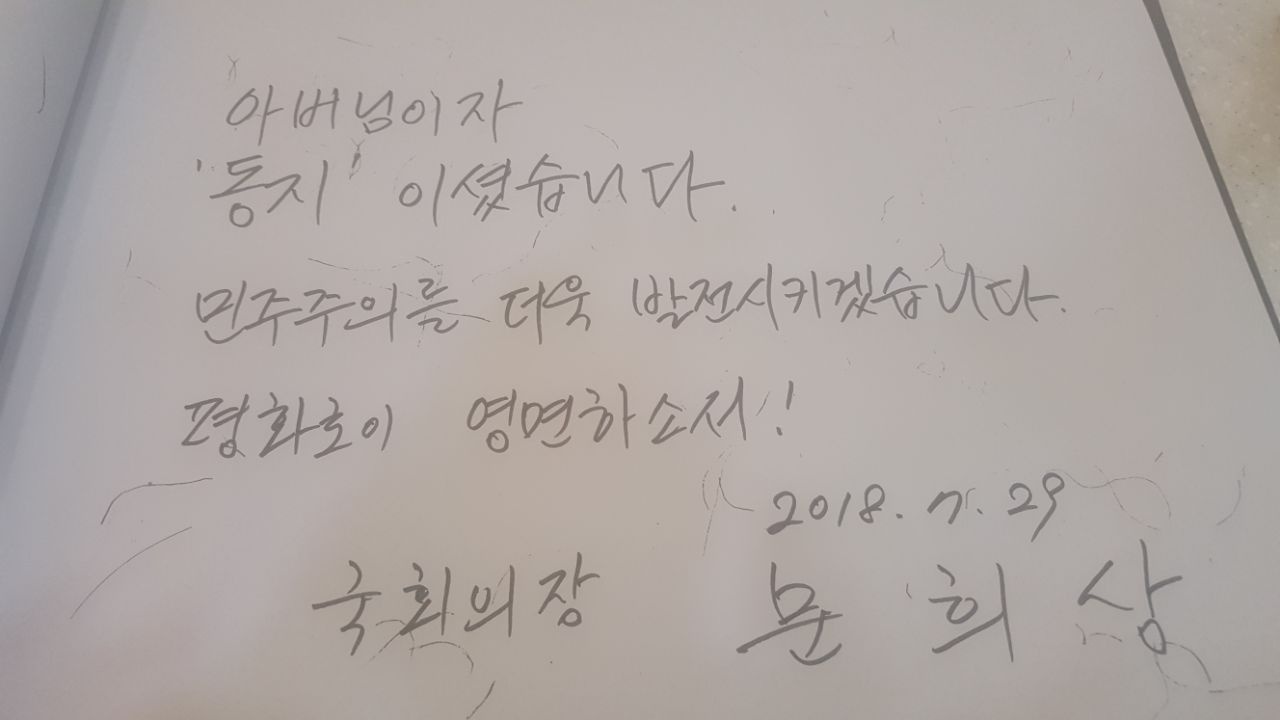 아버님이자
'동지' 이셨습니다.
민주주의를 더욱 발전시키겠습니다.
평화로이 영면하소서!
2018. 7. 29
국회의장 문희상